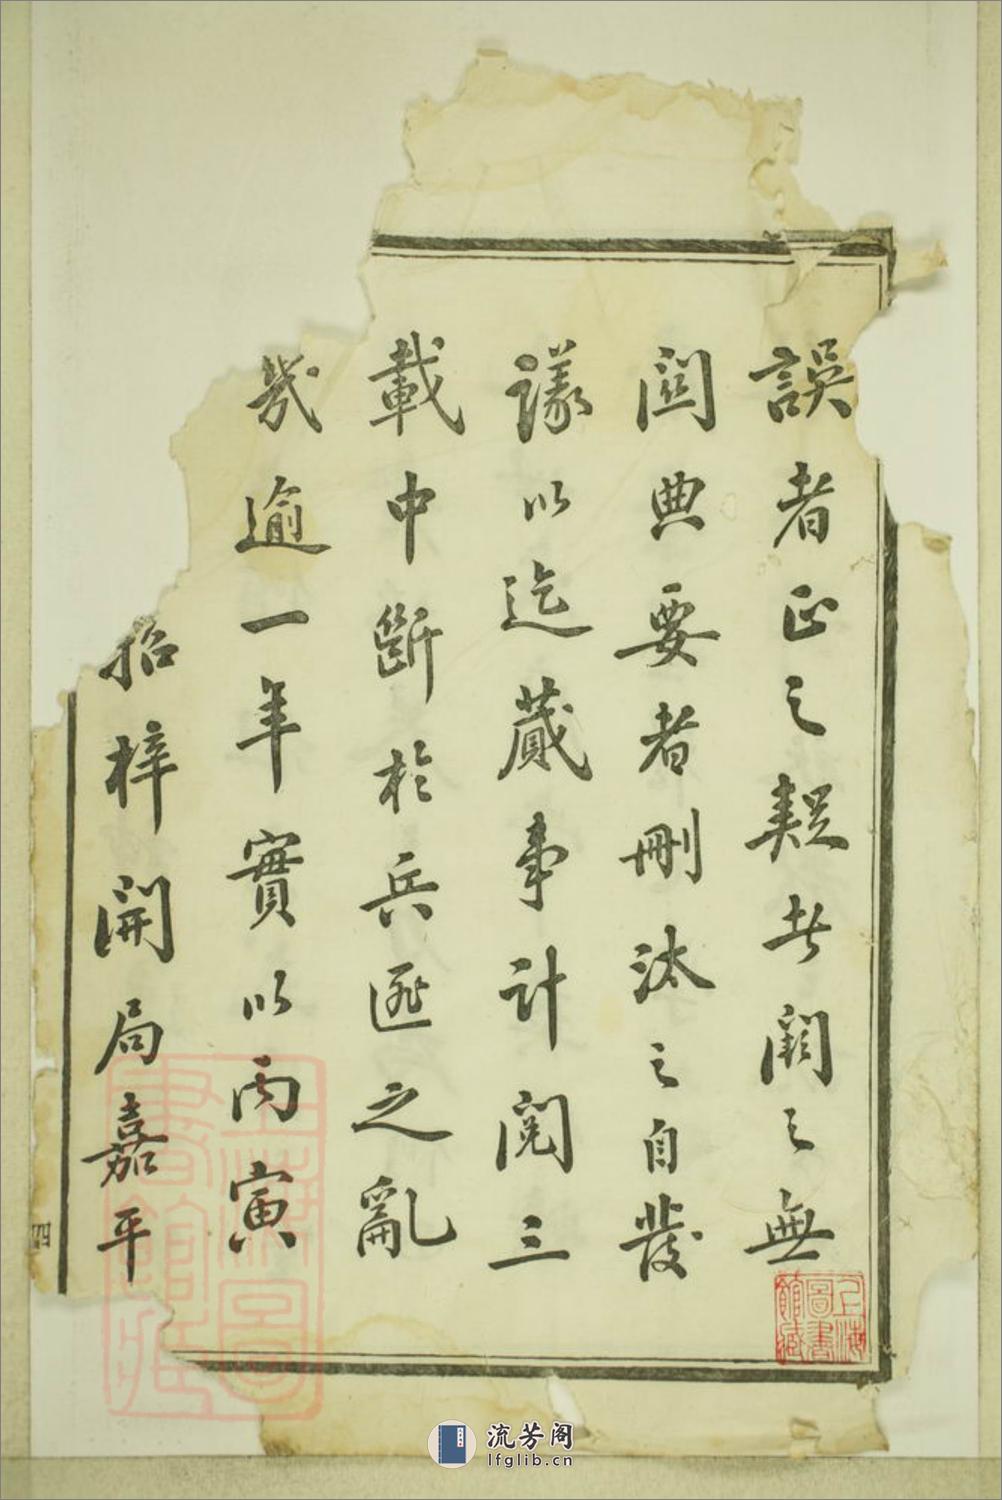 誤者正之疑者闕之無
關典要者刪汰之自發
議以迄蕆事計閱三
載中斷於兵匪之亂
幾逾一年實以丙寅
招梓開局嘉平
四
上海圖書館藏
上海圖書館藏
流芳阁
lfglib.cn